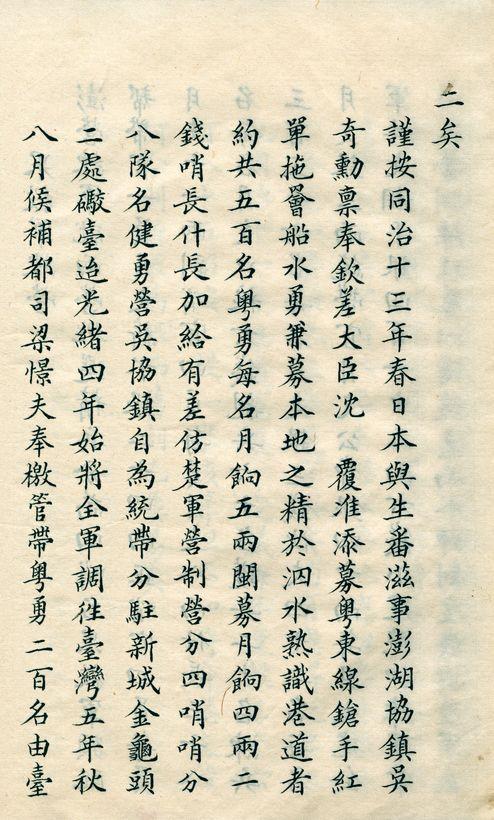 二矣
謹按同治十三年春日本與生番滋事澎湖協鎮吳
奇勳禀奉欽差大臣沈 公覆准添募粵東線鎗手紅
單拖罾船水勇兼募本地之精於泅水熟識港道者
約共五百名粵勇每名月餉五兩閩募月餉四兩二
錢哨長什長加給有差仿楚軍營制營分四哨哨分
八隊名健勇營吳協鎮自為統帶分駐新城金龜頭
二處礮臺迨光緒四年始將全軍調徃臺灣五年秋
八月候補都司梁憬夫奉檄管帶粵勇二百名由臺